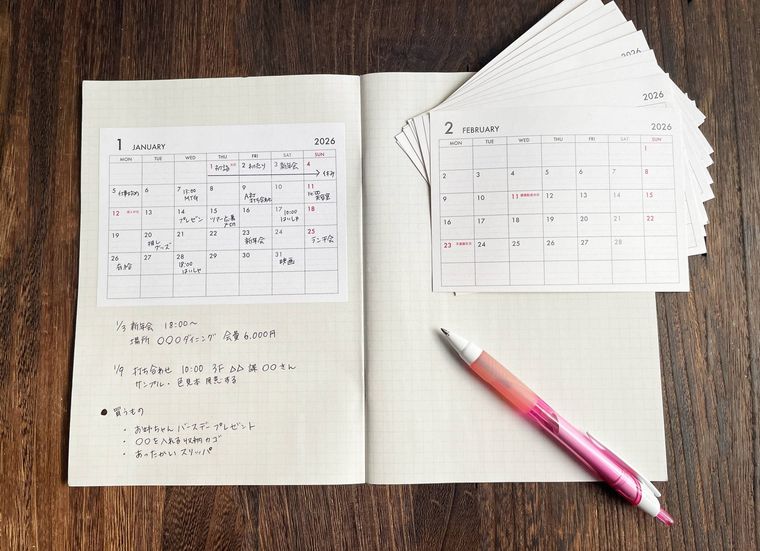 1 JANUARY 2026
MON TUE WED THU FRI SAT SUN
1 初詣 2 3 新年会 4
→休み
5 仕事始め 6 7 13:00 MTG 8 9 A社 打ち合わせ 10 11
12 成人の日 13 14 プレゼン 15 16 17 10:00 はいしゃ 18
19 20 推しグッズ 21 22 23 新年会 24 25 ランチ会
26 有給 27 28 18:00 はいしゃ 29 30 31 映画
1/3 新年会 18:00〜
場所 〇〇〇ダイニング 会費 6,000円
1/9 打ち合わせ 10:00 3F △△ 課 〇〇さん
サンプル・色見本 用意する
● 買うもの
・お姉ちゃん バースデープレゼント
・〇〇を入れる収納カゴ
・あったかいスリッパ
2 FEBRUARY 2026
MON TUE WED THU FRI SAT SUN
1
2 3 4 5 6 7 8
9 10 11 建国記念の日 12 13 14 15
16 17 18 19 20 21 22
23 天皇誕生日 24 25 26 27 28
2026
2026